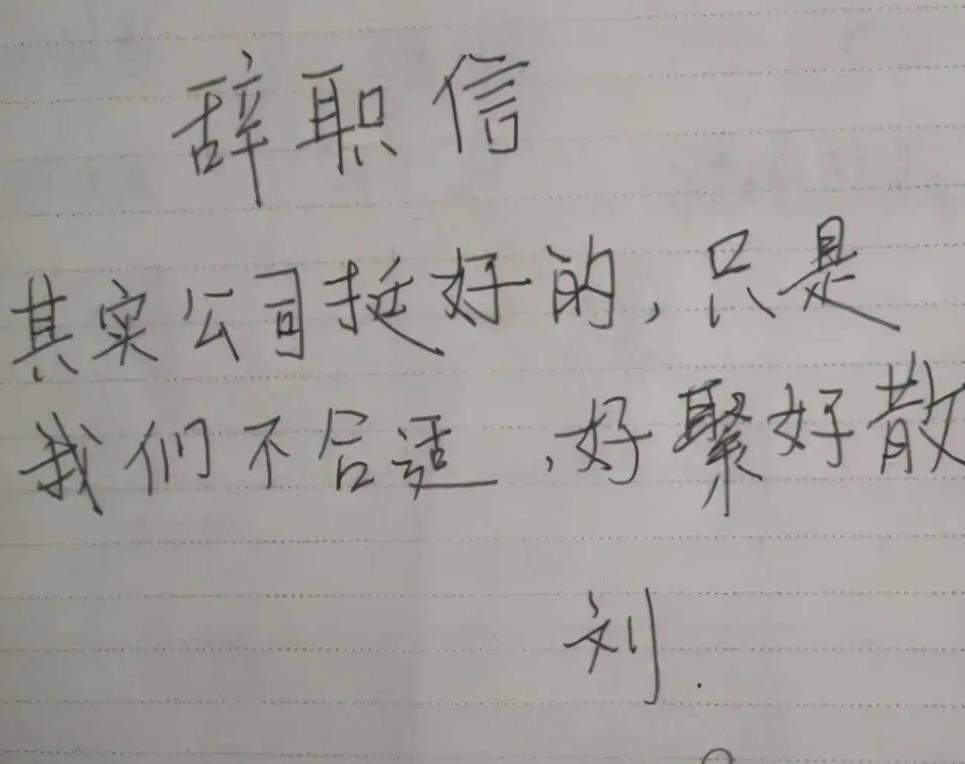 辞职信
其实公司挺好的,只是
我们不合适,好聚好散
刘.